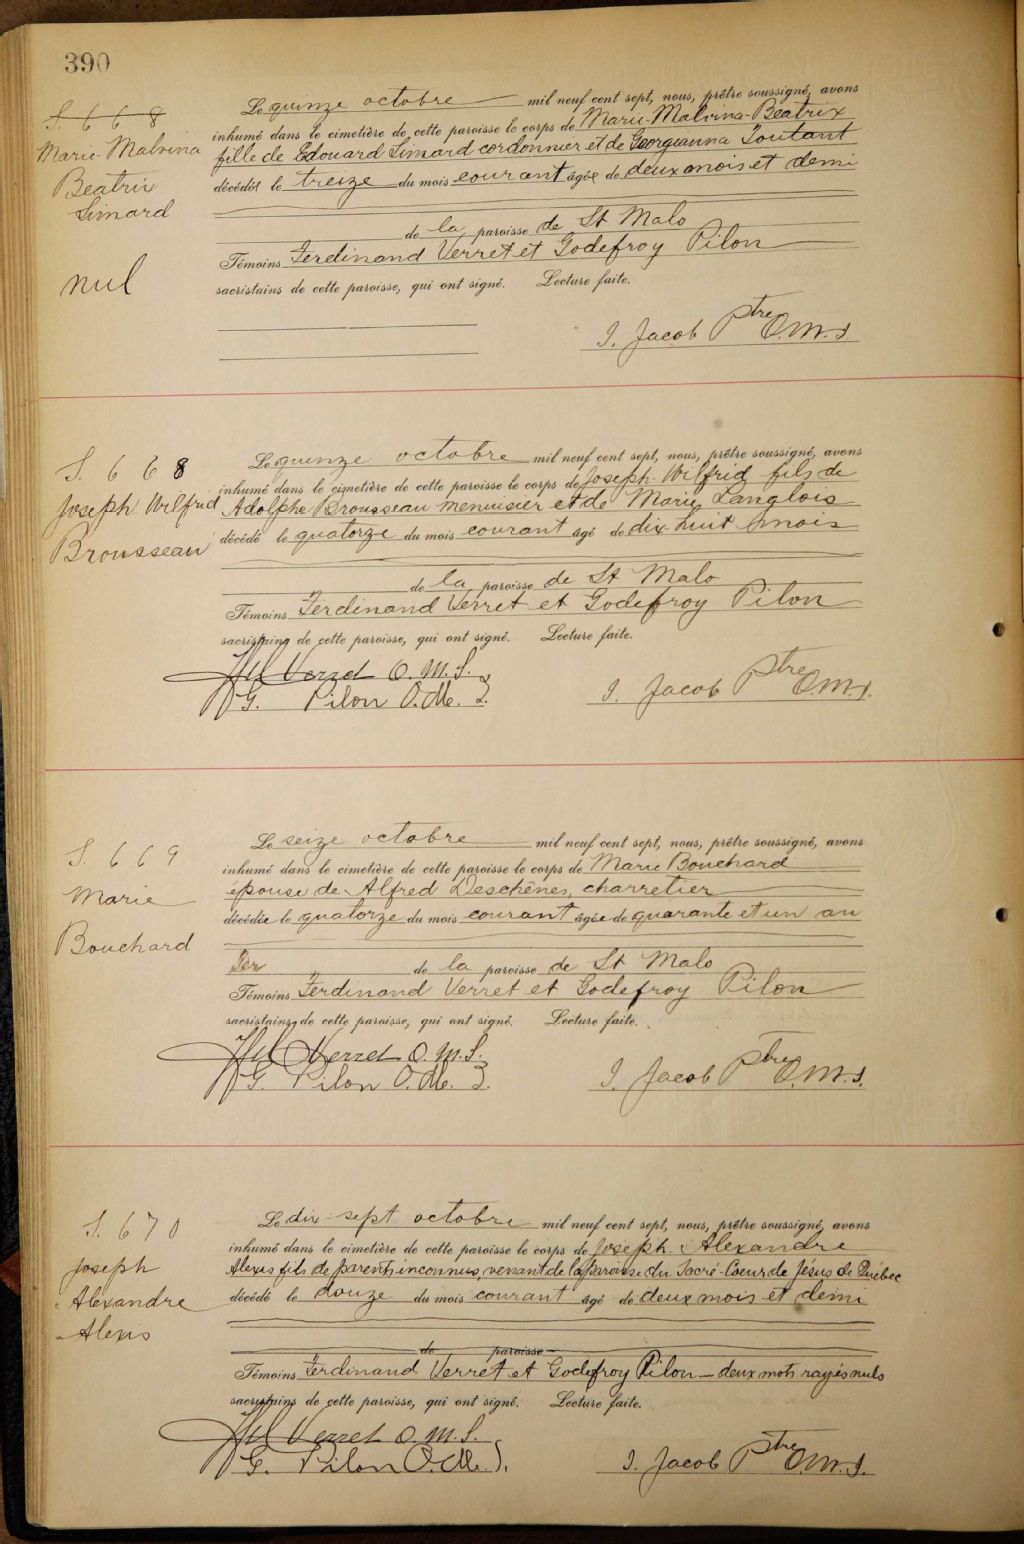 390
S. 6 6 8
Marie-Malvina
Beatrix
Simard
nul
Le quinze octobre mil neuf cent sept, nous, prêtre soussigné, avons
inhumé dans le cimetière de cette paroisse le corps de Marie-Malvina-Beatrix
fille de Edouard Simard cordonnier et de Georgianna Toutant
décédée le treize du mois courant âgée de deux mois et demi
de la paroisse de St Malo
Témoins Ferdinand Verret et Godefroy Pilon
sacristains de cette paroisse, qui ont signé. Lecture faite.
J. Jacob Ptre O.M.I.
S. 6 6 8
Joseph Wilfrid
Brousseau
Le quinze octobre mil neuf cent sept, nous, prêtre soussigné, avons
inhumé dans le cimetière de cette paroisse le corps de Joseph Wilfrid fils de
Adolphe Brousseau menuisier et de Marie Langlois
décédé le quatorze du mois courant âgé de dix huit mois
de la paroisse de St Malo
Témoins Ferdinand Verret et Godefroy Pilon
sacristains de cette paroisse, qui ont signé. Lecture faite.
Verret O.M.I.
G. Pilon O.M.I.
J. Jacob Ptre O.M.I.
S. 6 6 9
Marie
Bouchard
Le seize octobre mil neuf cent sept, nous, prêtre soussigné, avons
inhumé dans le cimetière de cette paroisse le corps de Marie Bouchard
épouse de Alfred Deschênes, charretier
décédée le quatorze du mois courant âgée de quarante et un an
Fer de la paroisse de St Malo
Témoins Ferdinand Verret et Godefroy Pilon
sacristains de cette paroisse, qui ont signé. Lecture faite.
Verret O.M.I.
G. Pilon O.M.I.
J. Jacob Ptre O.M.I.
S. 6 7 0
Joseph
Alexandre
Alexis
Le dix-sept octobre mil neuf cent sept, nous, prêtre soussigné, avons
inhumé dans le cimetière de cette paroisse le corps de Joseph Alexandre
Alexis fils de parents inconnus, venant de la paroisse du Sacré-Coeur de Jésus de Québec
décédé le douze du mois courant âgé de deux mois et demi
de paroisse
Témoins Ferdinand Verret et Godefroy Pilon — deux mots rayés nuls
sacristains de cette paroisse, qui ont signé. Lecture faite.
Verret O.M.I.
G. Pilon O.M.I.
J. Jacob Ptre O.M.I.